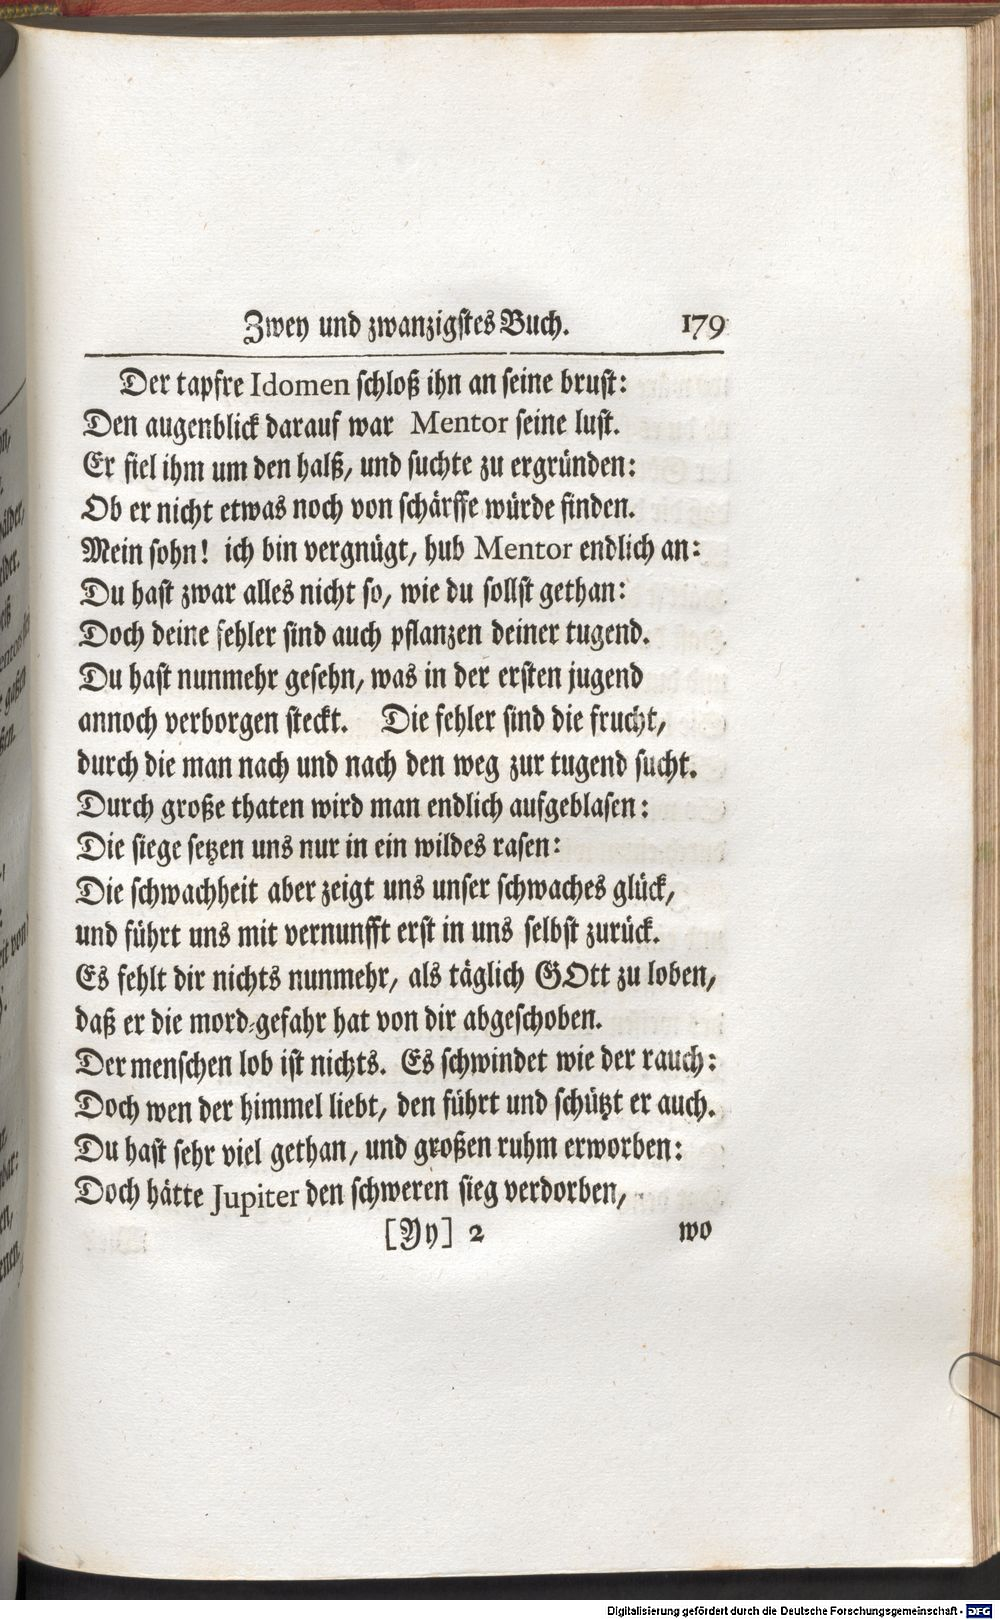 Zwey und zwanzigstes Buch. 179
Der tapfre Idomen schloß ihn an seine brust:
Den augenblick darauf war Mentor seine lust.
Er fiel ihm um den halß, und suchte zu ergründen:
Ob er nicht etwas noch von schärffe würde finden.
Mein sohn! ich bin vergnügt, hub Mentor endlich an:
Du hast zwar alles nicht so, wie du sollst gethan:
Doch deine fehler sind auch pflanzen deiner tugend.
Du hast nunmehr gesehn, was in der ersten jugend
annoch verborgen steckt. Die fehler sind die frucht,
durch die man nach und nach den weg zur tugend sucht.
Durch große thaten wird man endlich aufgeblasen:
Die siege setzen uns nur in ein wildes rasen:
Die schwachheit aber zeigt uns unser schwaches glück,
und führt uns mit vernunfft erst in uns selbst zurück.
Es fehlt dir nichts nunmehr, als täglich GOtt zu loben,
daß er die mord-gefahr hat von dir abgeschoben.
Der menschen lob ist nichts. Es schwindet wie der rauch:
Doch wen der himmel liebt, den führt und schützt er auch.
Du hast sehr viel gethan, und großen ruhm erworben:
Doch hätte Jupiter den schweren sieg verdorben,
[Yy] 2 wo
Digitalisierung gefördert durch die Deutsche Forschungsgemeinschaft - DFG